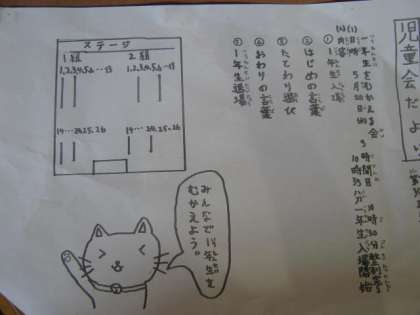 児童会だより
一年生をむかえる会
(1)日時 5月30日
3時間目
10時35分 一年生入場開始
(2)内容
①1年生入場
②はじめの言葉
③たてわり遊び
④おわりの言葉
⑤1年生退場
ステージ
1組 2組
1,2,3,4,5,6…13 1,2,3,4,5,6…13
14…24,25,26 14…24,25,26
みんなで1年生を
むかえよう。